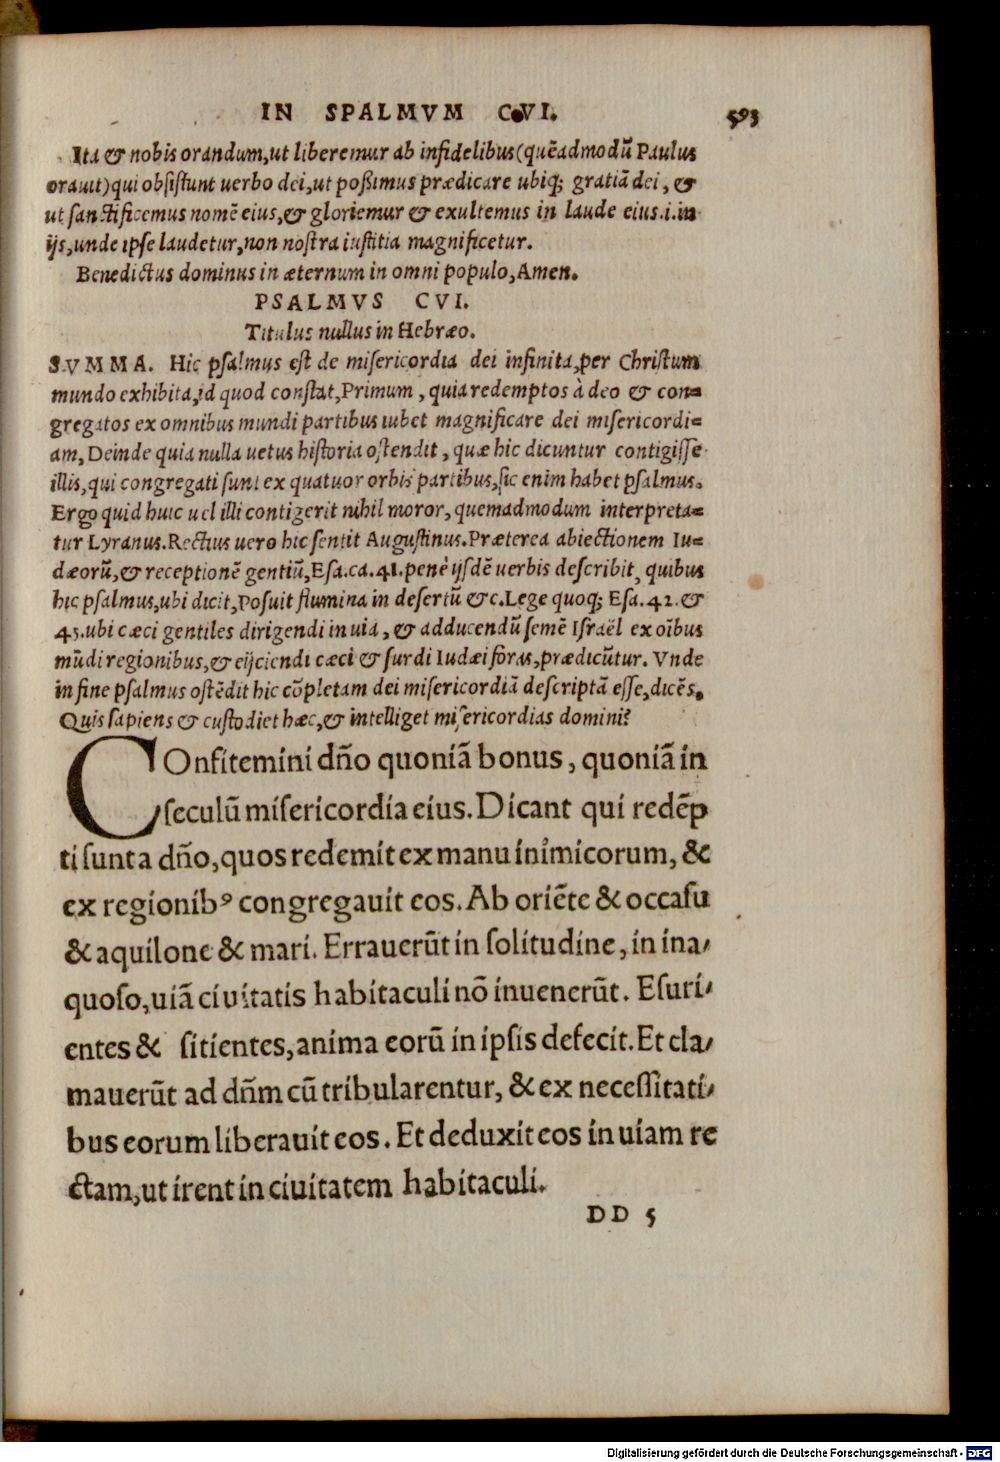 IN SPALMVM CVI. 593
Ita & nobis orandum, ut liberemur ab infidelibus (quẽadmodũ Paulus
orauit) qui obsistunt uerbo dei, ut poßimus prædicare ubiq; gratiã dei, &
ut sanctificemus nomẽ eius, & gloriemur & exultemus in laude eius.i.in
ijs, unde ipse laudetur, non nostra iustitia magnificetur.
Benedictus dominus in æternum in omni populo, Amen.
PSALMVS CVI.
Titulus nullus in Hebræo.
SVMMA. Hic psalmus est de misericordia dei infinita, per Christum
mundo exhibita, id quod constat, Primum, quia redemptos à deo & con=
gregatos ex omnibus mundi partibus iubet magnificare dei misericordi=
am, Deinde quia nulla uetus historia ostendit, quæ hic dicuntur contigisse
illis, qui congregati sunt ex quatuor orbis partibus, sic enim habet psalmus.
Ergo quid huic uel illi contigerit nihil moror, quemadmodum interpreta=
tur Lyranus. Rectius uero hic sentit Augustinus. Præterea abiectionem Iu=
dæorũ, & receptionẽ gentiũ, Esa.ca.41. penè ijsdẽ uerbis describit, quibus
hic psalmus, ubi dicit, Posuit flumina in desertũ &c. Lege quoq; Esa.42. &
43. ubi cæci gentiles dirigendi in uia, & adducendũ semẽ Israël ex oĩbus
mũdi regionibus, & eijciendi cæci & surdi Iudæi foras, prædicũtur. Vnde
in fine psalmus ostẽdit hic cõpletam dei misericordiã descriptã esse, dicẽs.
Quis sapiens & custodiet hæc, & intelliget misericordias domini?
COnfitemini dño quoniã bonus, quoniã in
seculũ misericordia eius. Dicant qui redẽp
ti sunt a dño, quos redemit ex manu inimicorum, &
ex regionibꝰ congregauit eos. Ab oriẽte & occasu
& aquilone & mari. Errauerũt in solitudine, in ina/
quoso, uiã ciuitatis habitaculi nõ inuenerũt. Esuri/
entes & sitientes, anima eorũ in ipsis defecit. Et cla/
mauerũt ad dñm cũ tribularentur, & ex necessitati/
bus eorum liberauit eos. Et deduxit eos in uiam re
ctam, ut irent in ciuitatem habitaculi.
DD 5
Digitalisierung gefördert durch die Deutsche Forschungsgemeinschaft - DFG